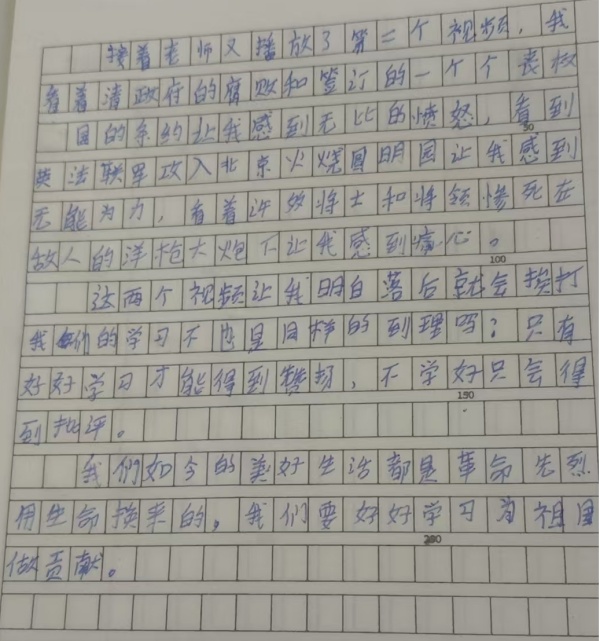 接着老师又播放了第二个视频，我
看着清政府的腐败和签订的一个个丧权
国的条约让我感到无比的愤怒，看到
50
英法联军攻入北京火烧圆明园让我感到
无能为力，看着许多将士和将领惨死在
敌人的洋枪大炮下让我感到痛心。
100
这两个视频让我明白落后就会挨打
我们的学习不也是同样的到理吗？只有
好好学习才能得到赞扬，不学好只会得
150
到批评。
我们如今的美好生活都是革命先烈
用生命换来的，我们要好好学习为祖国
200
做贡献。